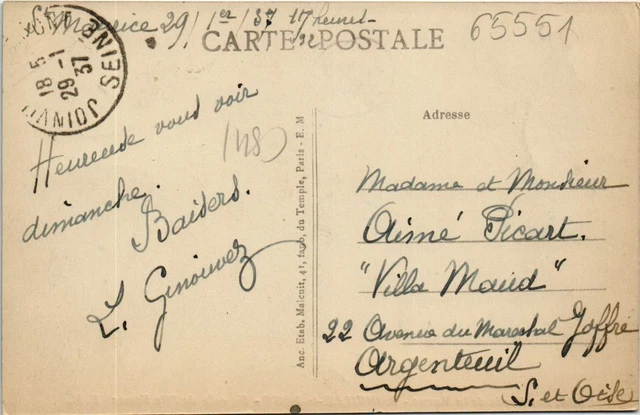 St Maurice 29/1er/37 17 heures
32
CARTE POSTALE
65551
JOINVILLE SEINE
18 5
29 -1
37
Adresse
(1480)
Heureuse vous voir
dimanche.
Baisers.
L. Ginouvez
Anc. Etab. Malcuit, 41, faub. du Temple, Paris - E. M
Madame et Monsieur
Aimé Picart.
"Villa Maud"
22 Avenue du Marechal Joffre
Argenteuil
S. et Oise